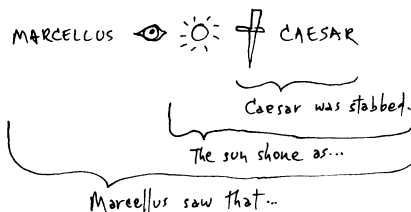 MARCELLUS CAESAR
Caesar was stabbed.
The sun shone as...
Marcellus saw that...